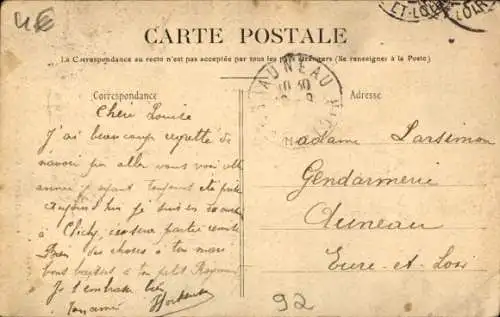 4€
ET-LOIR
CARTE POSTALE
La Correspondance au recto n'est pas acceptée par tous les pays étrangers (Se renseigner à la Poste)
Correspondance
Adresse
AUNEAU
Chère Louise
J'ai beaucoup regretté de
n'avoir pu aller vous voir cette
année y ayant toujours été
aujourd'hui je suis en
à Clichy
Bien des choses à ton mari
bons baisers à ton petit Raymond
Je t'embrasse bien
Ton amie
Madame Larsimon
Gendarmerie
Auneau
Eure-et-Loir
92